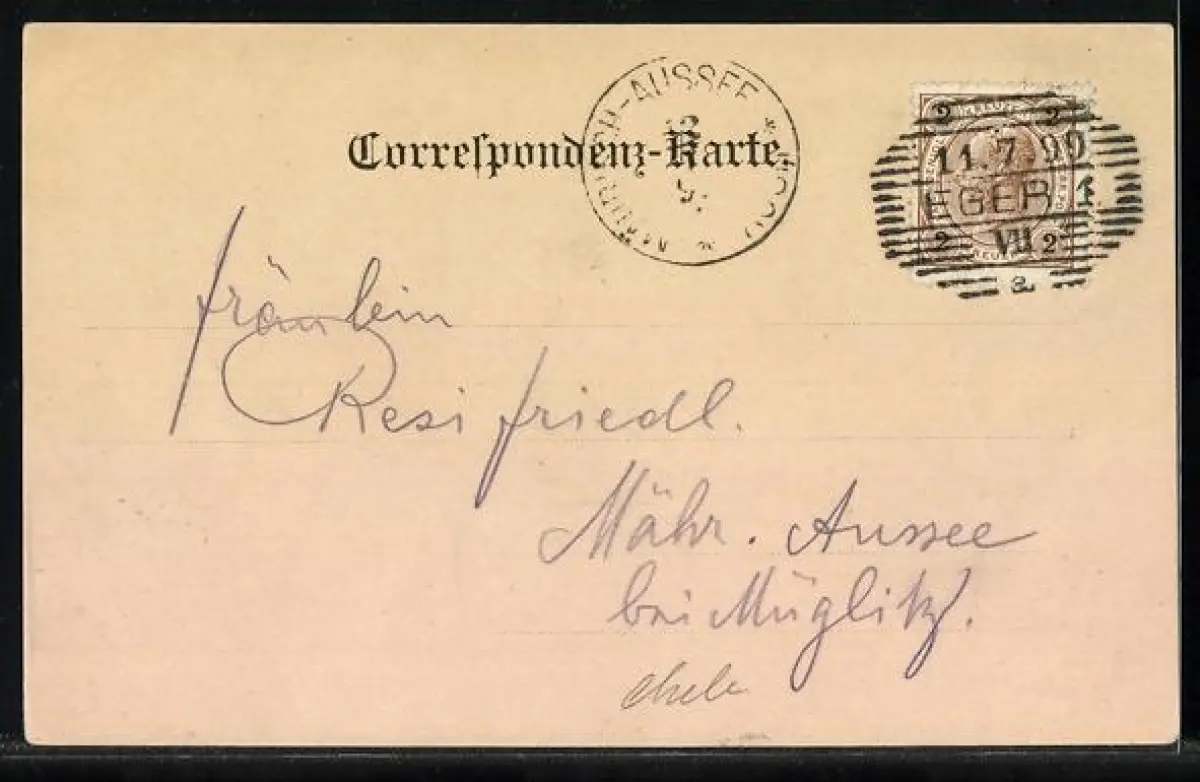 Correspondenz-Karte.
MÄHRISCH-AUSSEE
2 2
11.7 90
EGER 1
VII
2 2
a
Fräulein
Resi Friedl.
Mähr. Aussee
bei Müglitz.